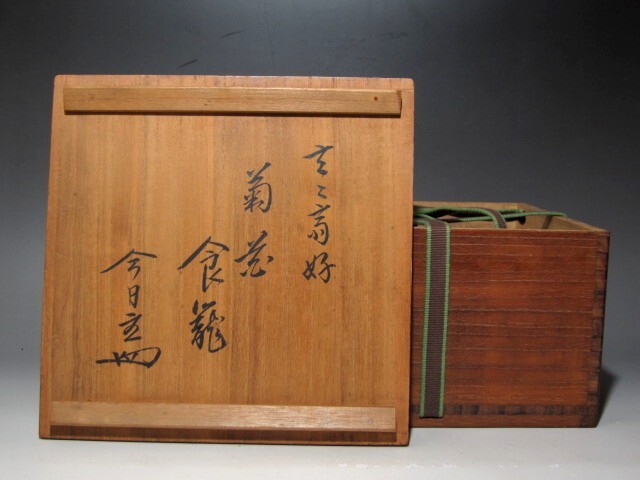 玄々斎好
菊花
食籠
今日主